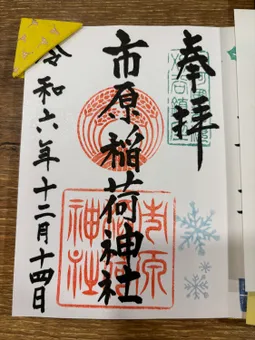 奉拝
市原稲荷神社
令和六年十二月十四日
市原
稲荷
神社